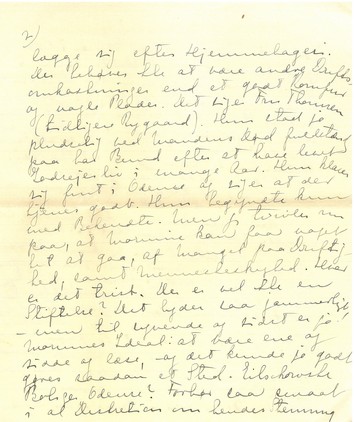 2)
lægge sig efter Hjemmelageri.
Der behøves ikke at være andre Drifts-
omkostninger end et godt Komfur
og nogle Plader. Det siges Fru Thomsen
(Lidlijen Rygaard). Hun stod jo
pludselig ved Mandens Død fuldstændig
paa bar Bund efter at have levet
i mange Aar. Hun klarer
sig fint i Odense og siges at det
tjenes godt. Hun begyndte kun
med Bekendte. Men jo tvivler nu
paa, at Mornine kan faar noget
let at gaa, af Mangel paa Driftig-
hed, samt Menneskeskyhed. Hvor
er det trist. Der er vel ikke en
Stiftelse? Det lyder saa jammerligt
- men til syvende og sidst er jo
Mornines Ideal: at være ene og
sidde og læse, - og det kunde jo godt
gøres saadan et Sted. Eilschowske
Boliger Odense? Forhør saa smaat
i al Diskretion om hendes Stemning